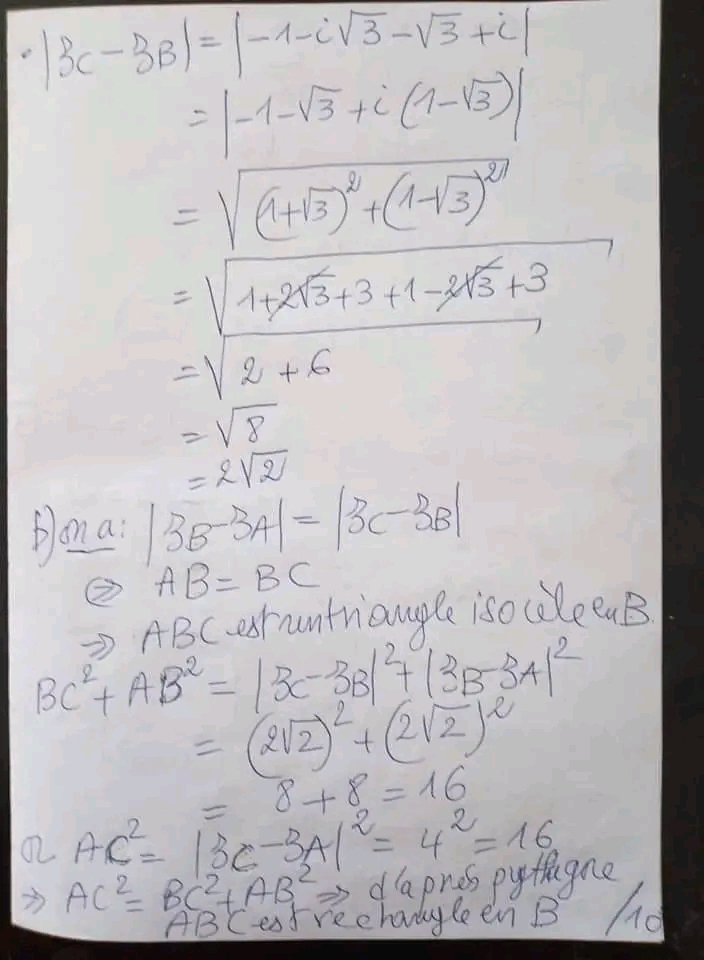 • |3C - 3B| = |-1 - i√3 - √3 + i|
= |-1 - √3 + i(1 - √3)|
= √((1+√3)² + (1-√3)²)
= √(1 + 2√3 + 3 + 1 - 2√3 + 3)
= √(2 + 6)
= √8
= 2√2
b) on a: |3B - 3A| = |3C - 3B|
⇔ AB = BC
⇒ ABC est un triangle isocèle en B.
BC² + AB² = |3C - 3B|² + |3B - 3A|²
= (2√2)² + (2√2)²
= 8 + 8 = 16
or AC² = |3C - 3A|² = 4² = 16
⇒ AC² = BC² + AB² ⇒ d'après pythagore
ABC est rectangle en B /10